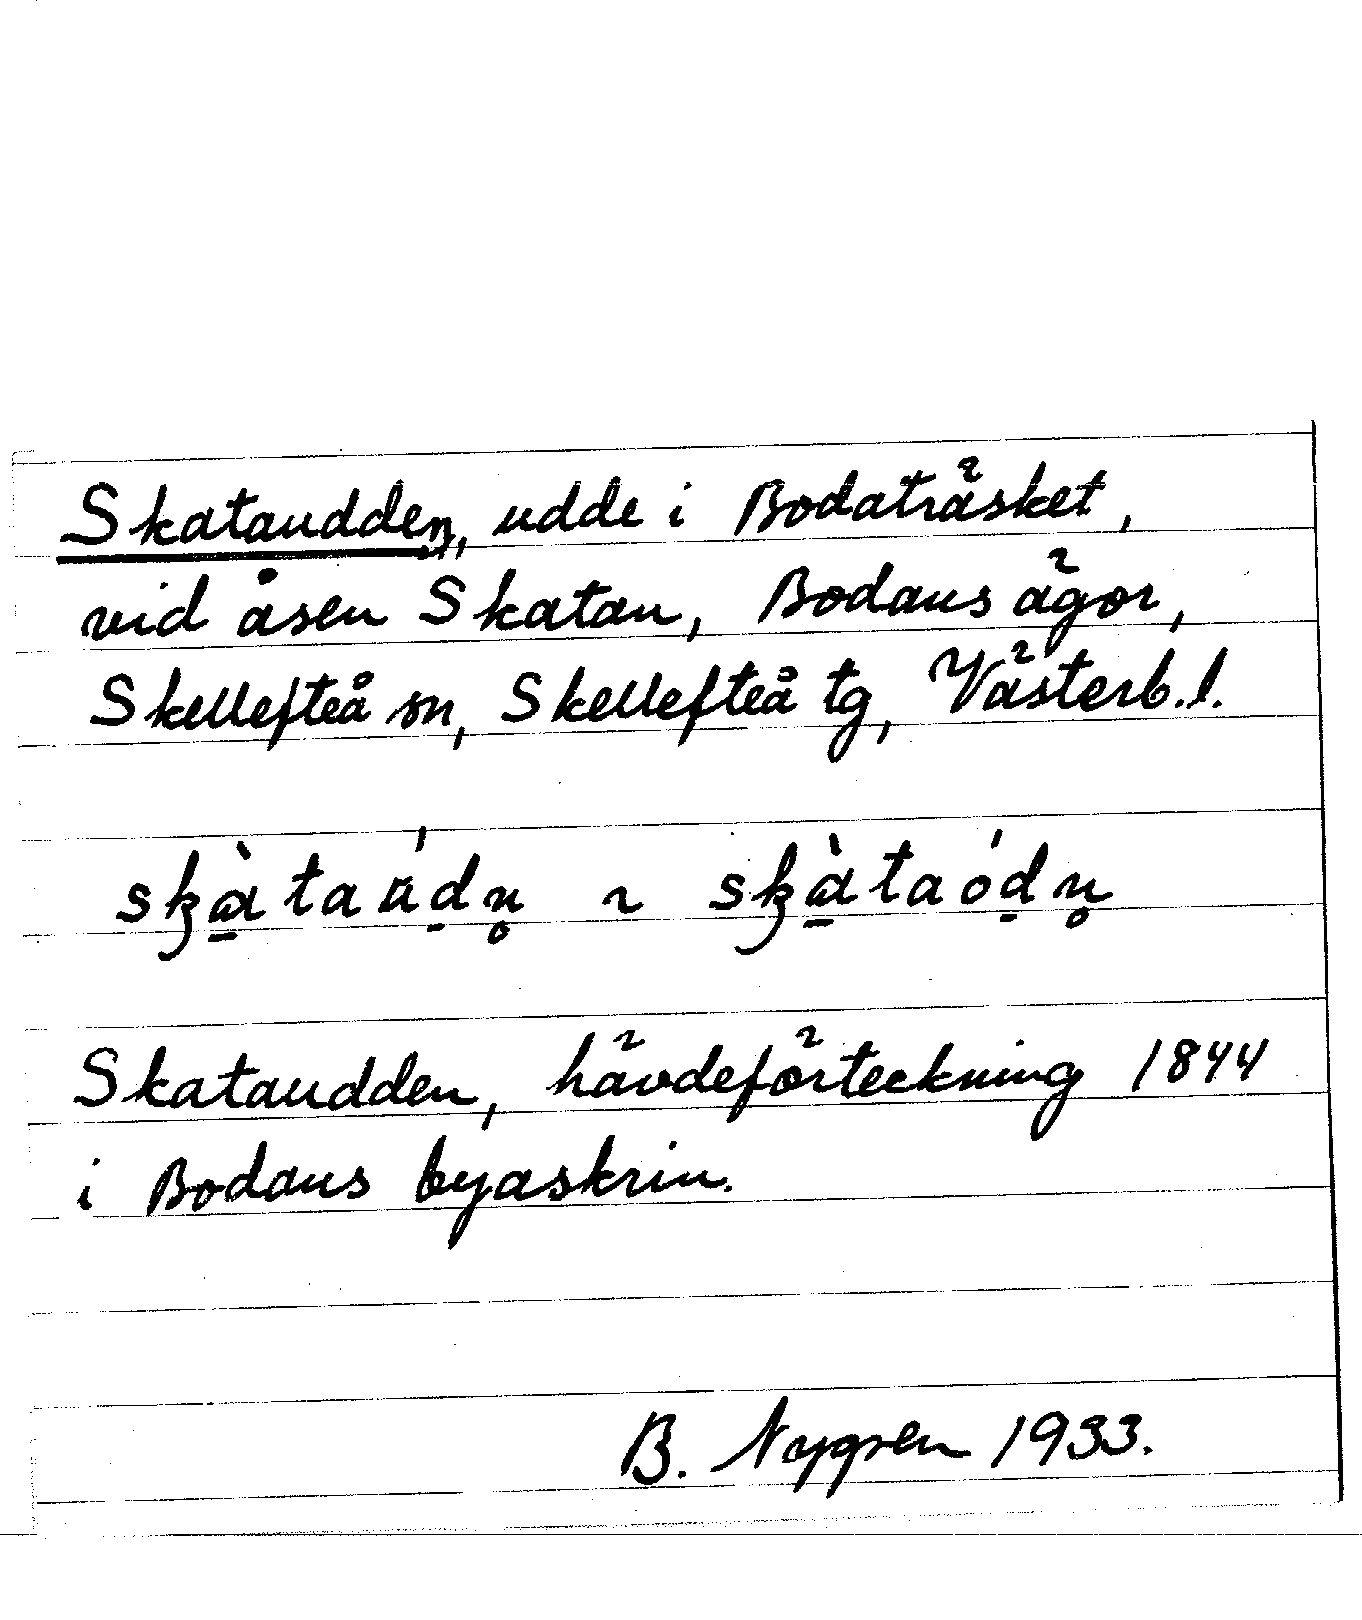 Skataudden, udde i Bodaträsket,
vid åsen Skatan, Bodans ägor,
Skellefteå sn, Skellefteå tg, Västerb. l.
skàtaúdn ~ skàtaódn
Skataudden, hävdeförteckning 1844
i Bodans byaskrin.
B. Nygren 1933.